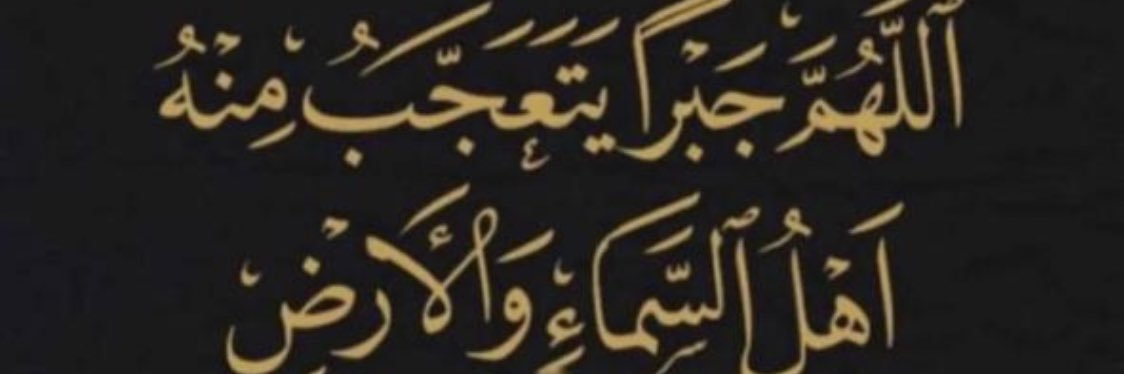 اَللَّهُمَّ جَبْراً يَتَعَجَّبُ مِنْهُ
اَهْلُ اَلسَّمَاءِ وَالْأَرْضِ